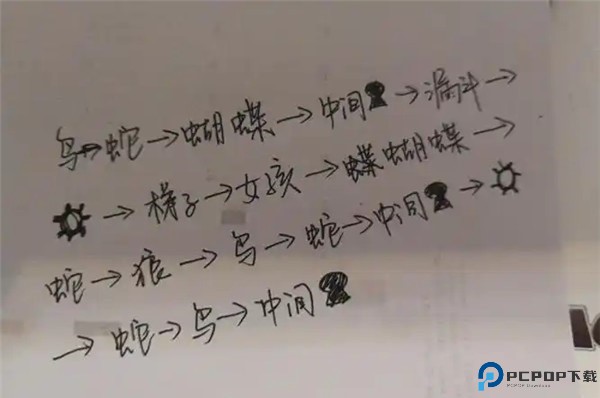 鸟→蛇→蝴蝶→中间→漏斗→
→梯子→女孩→蝶蝴蝶→
蛇→狼→鸟→蛇→中间→
→蛇→鸟→中间
PCPOP下载
PCPOP Download